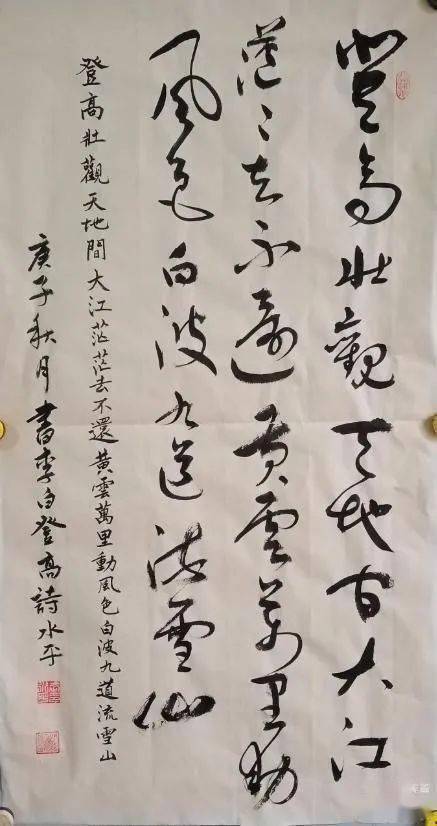 登高壯觀天地间大江
茫茫去不還黄雲萬里動
風色白波九道流雪山
登高壯觀天地間大江茫茫去不還黄雲萬里動風色白波九道流雪山
庚子秋月書李白登高詩水平